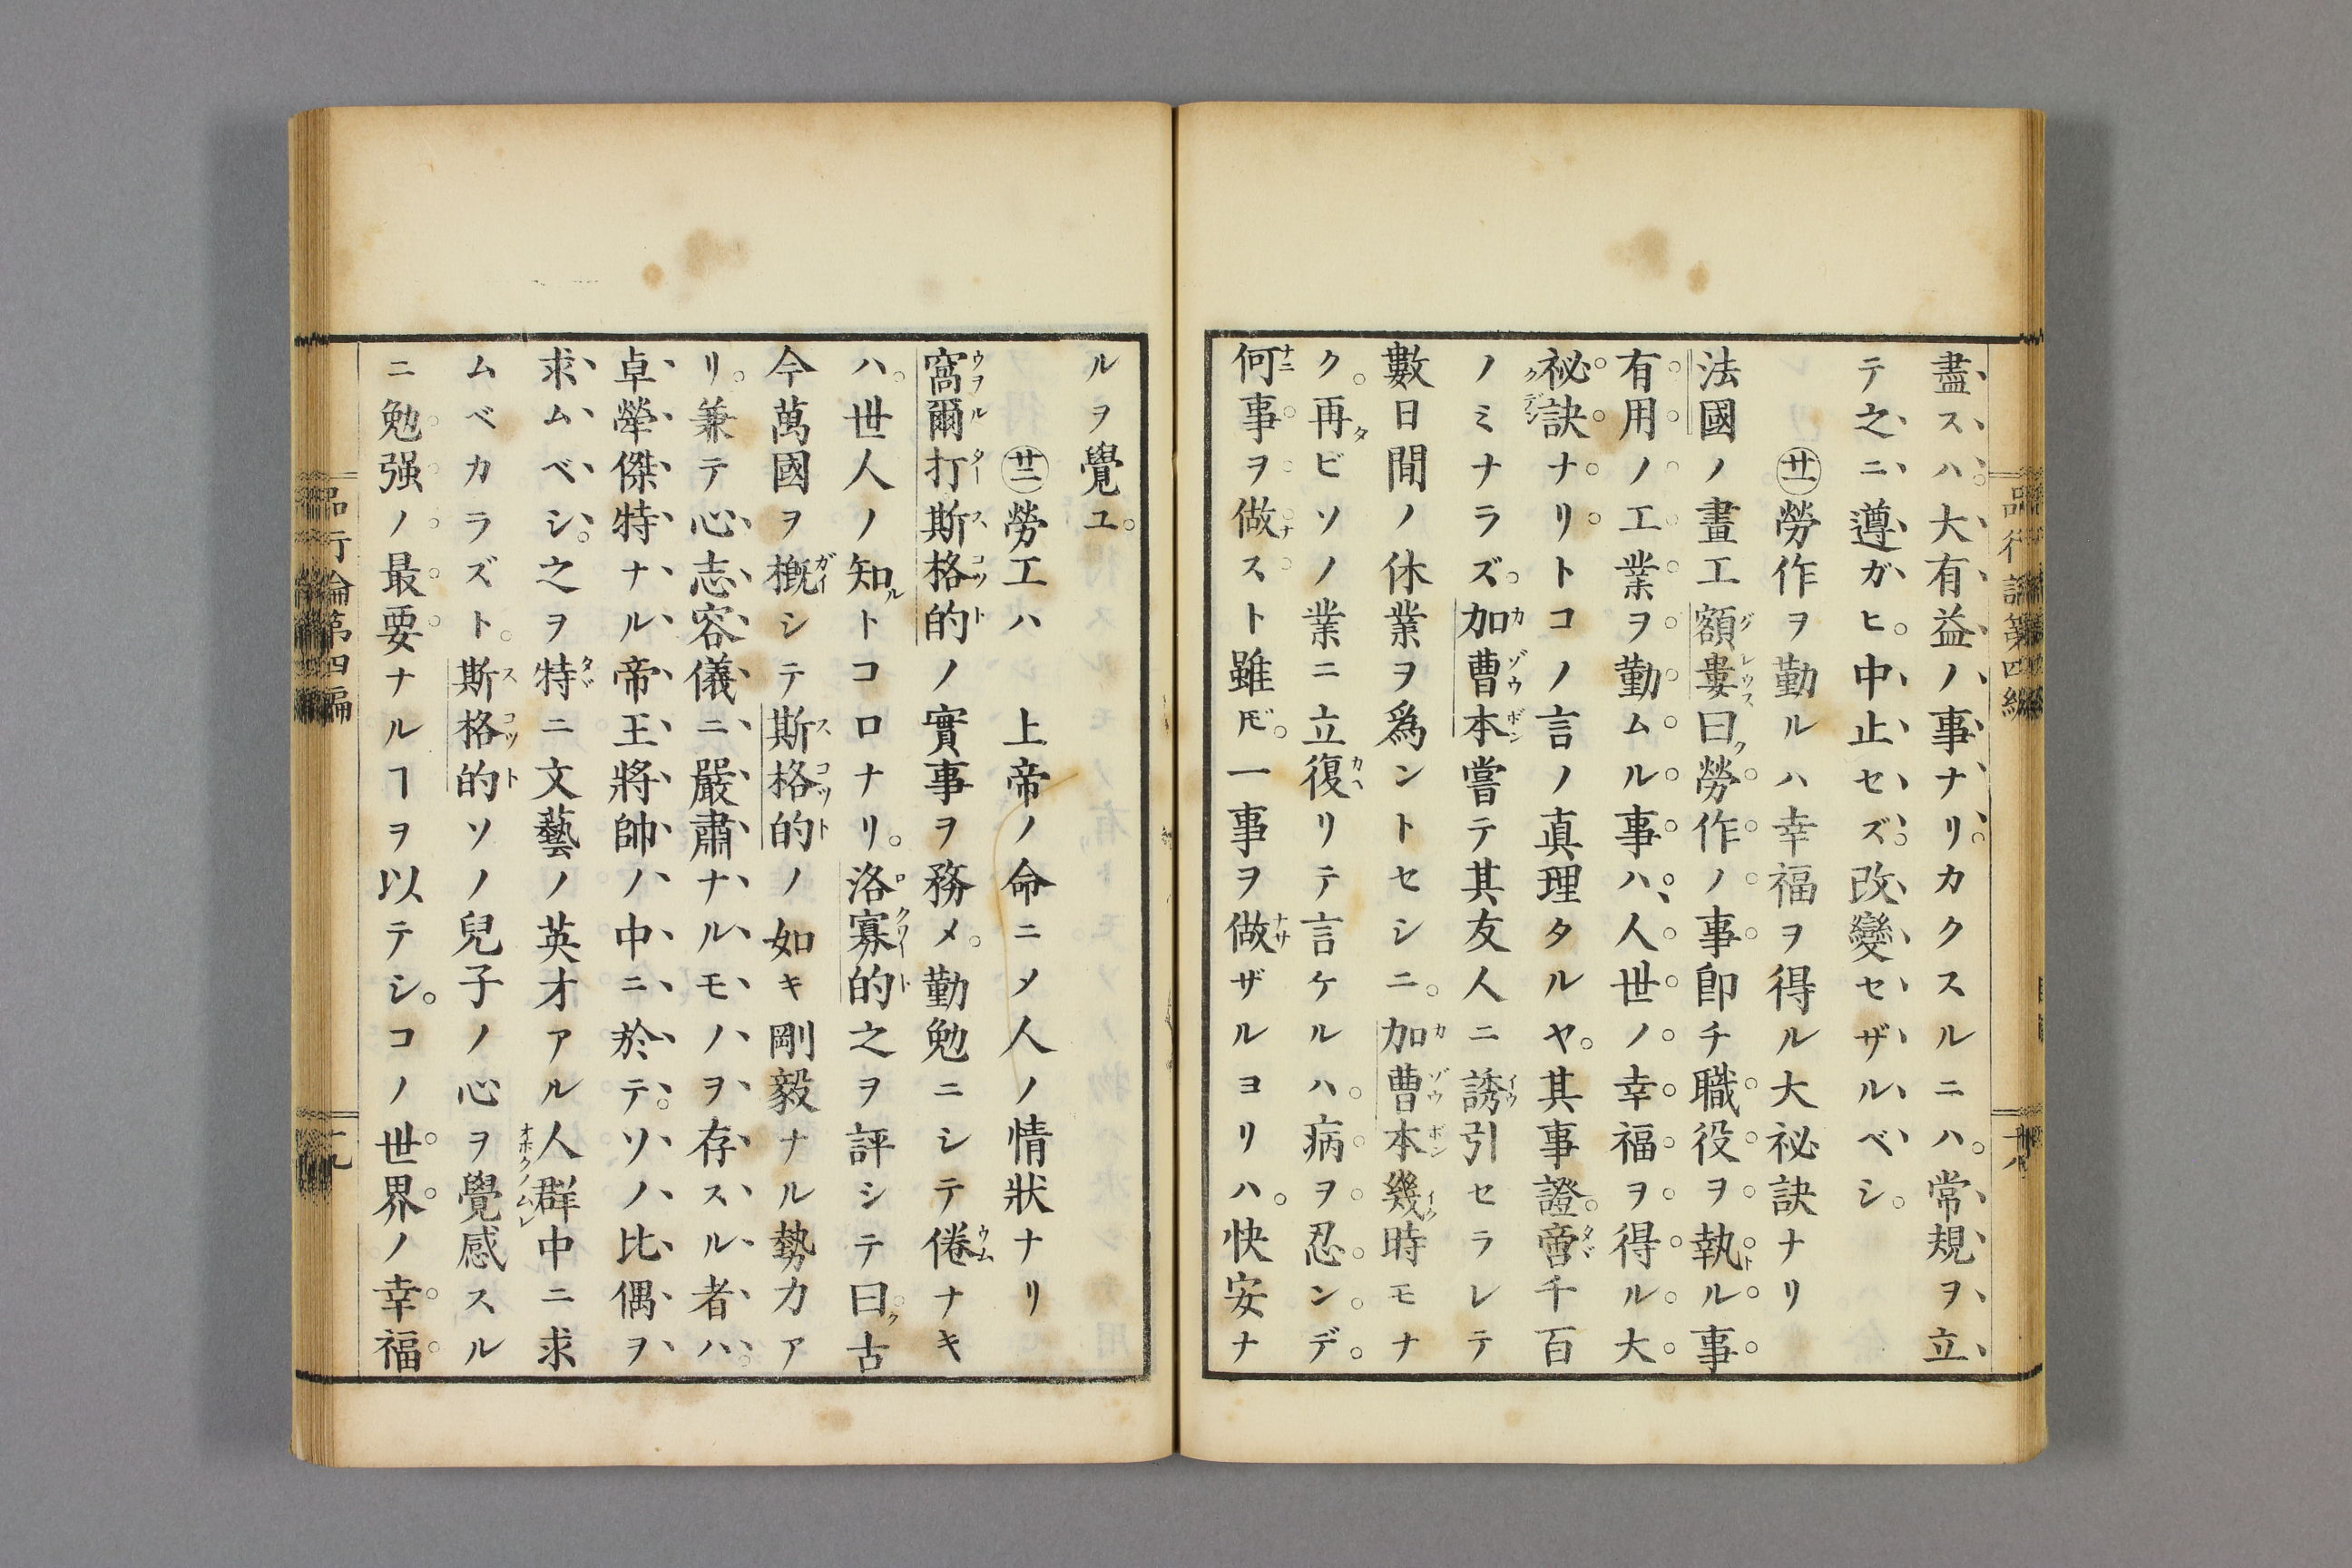 盡スハ大有益ノ事ナリカクスルニハ。常規ヲ立
テ之ニ遵ガヒ。中止セズ。改變セザルベシ。
㊁勞作ヲ勤ルハ幸福ヲ得ル大祕訣ナリ
法國ノ畫工額婁曰勞作ノ事卽チ職役ヲ執ル事
有用ノ工業ヲ勤ムル事ハ、人世ノ幸福ヲ得ル大
祕訣ナリトコノ言ノ真理タルヤ。其事證。啻千百
ノミナラズ。加曹本嘗テ其友人ニ誘引セラレテ
數日間ノ休業ヲ爲ントセシニ。加曹本幾時モナ
ク。再ビソノ業ニ立復リテ言ケルハ。病ヲ忍ンデ。
何事ヲ做スト雖𪜈。一事ヲ做ザルヨリハ。快安ナ
ルヲ覺ユ。
勞工ハ 上帝ノ命ニメ人ノ情狀ナリ
窩爾打斯格的ノ實事ヲ務メ。勤勉ニシテ倦ナキ
ハ。世人ノ知トコロナリ。洛寡的之ヲ評シテ曰古
今萬國ヲ槪シテ斯格的ノ如キ剛毅ナル勢力ア
リ。兼テ心志容儀ニ嚴肅ナルモノヲ存スル者ハ。
卓犖傑特ナル帝王將帥ノ中ニ於テ。ソノ比偶ヲ
求ムベシ。之ヲ特ニ文藝ノ英才アル人群中ニ求
ムベカラズト。斯格的ソノ兒子ノ心ヲ覺感スル
ニ勉强ノ最要ナルヿヲ以テシ。コノ世界ノ幸福
品行論第四編